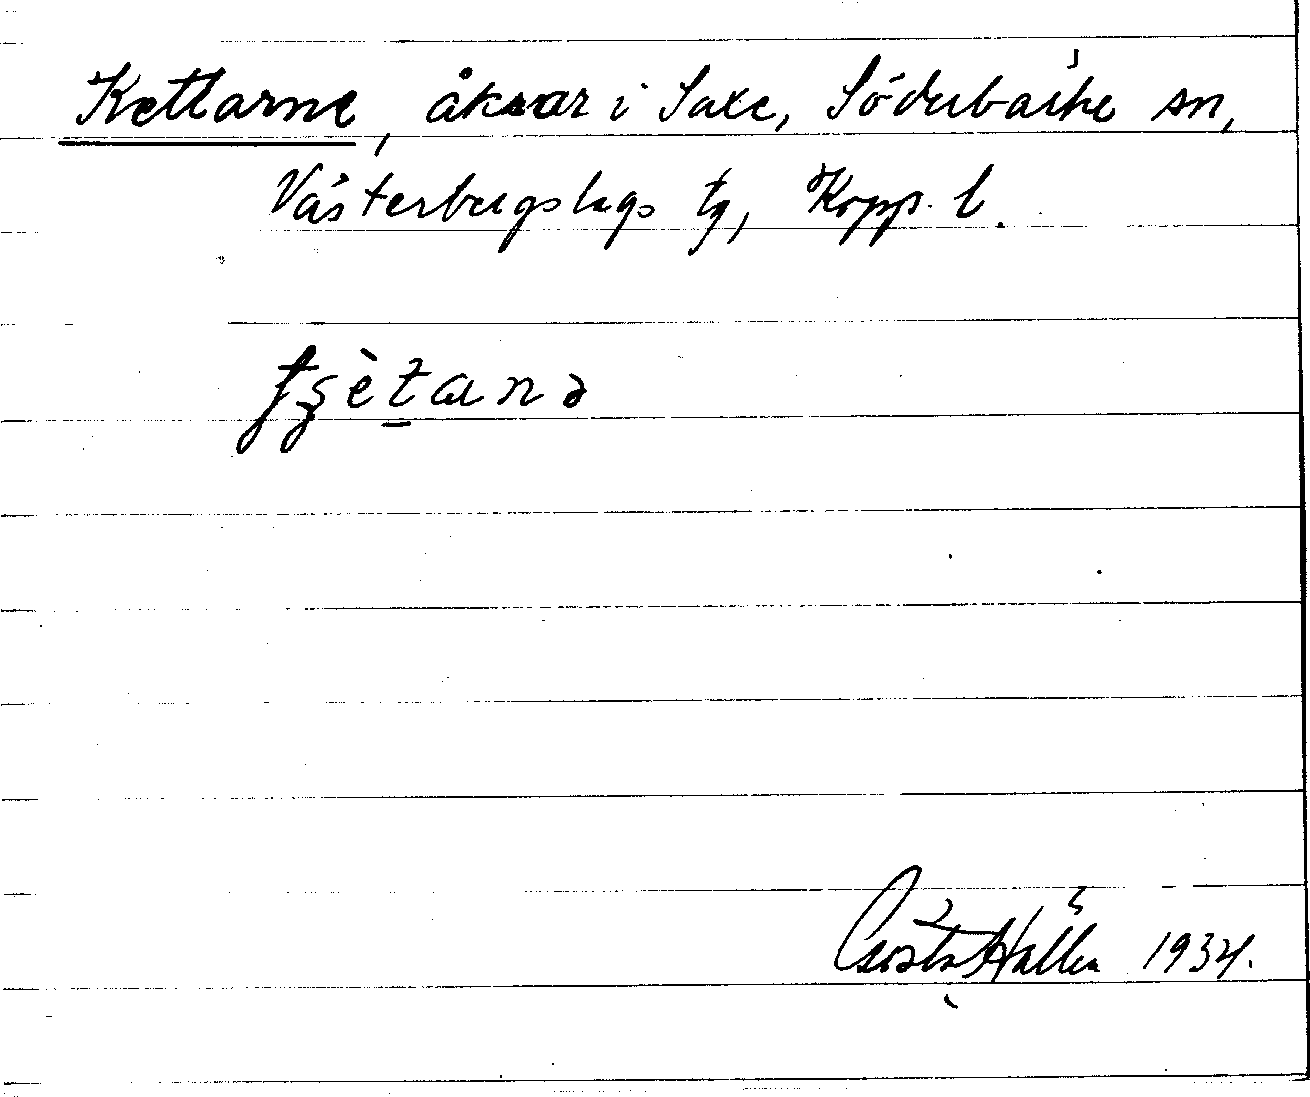 Kettarne, åkrar i Saxe, Söderbärke sn,
Västerbergslags tg, Kopp. l.
Gösta Hallén 1934.